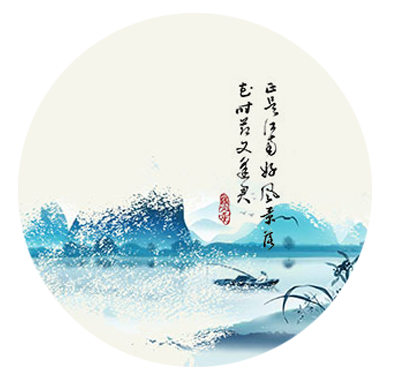 正是江南好风景落
花时节又逢君